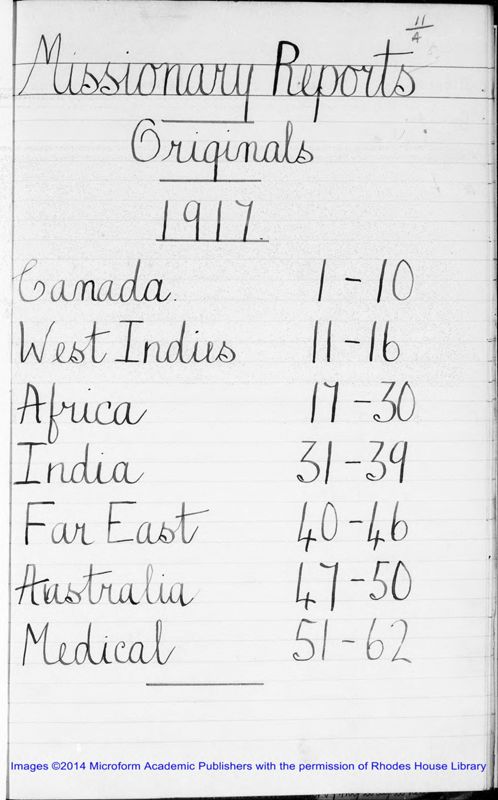 11
4
Missionary Reports
Originals
1917.
Canada. 1 - 10
West Indies 11 - 16
Africa 17 - 30
India 31 - 39
Far East 40 - 46
Australia 47 - 50
Medical 51 - 62
Images ©2014 Microform Academic Publishers with the permission of Rhodes House Library